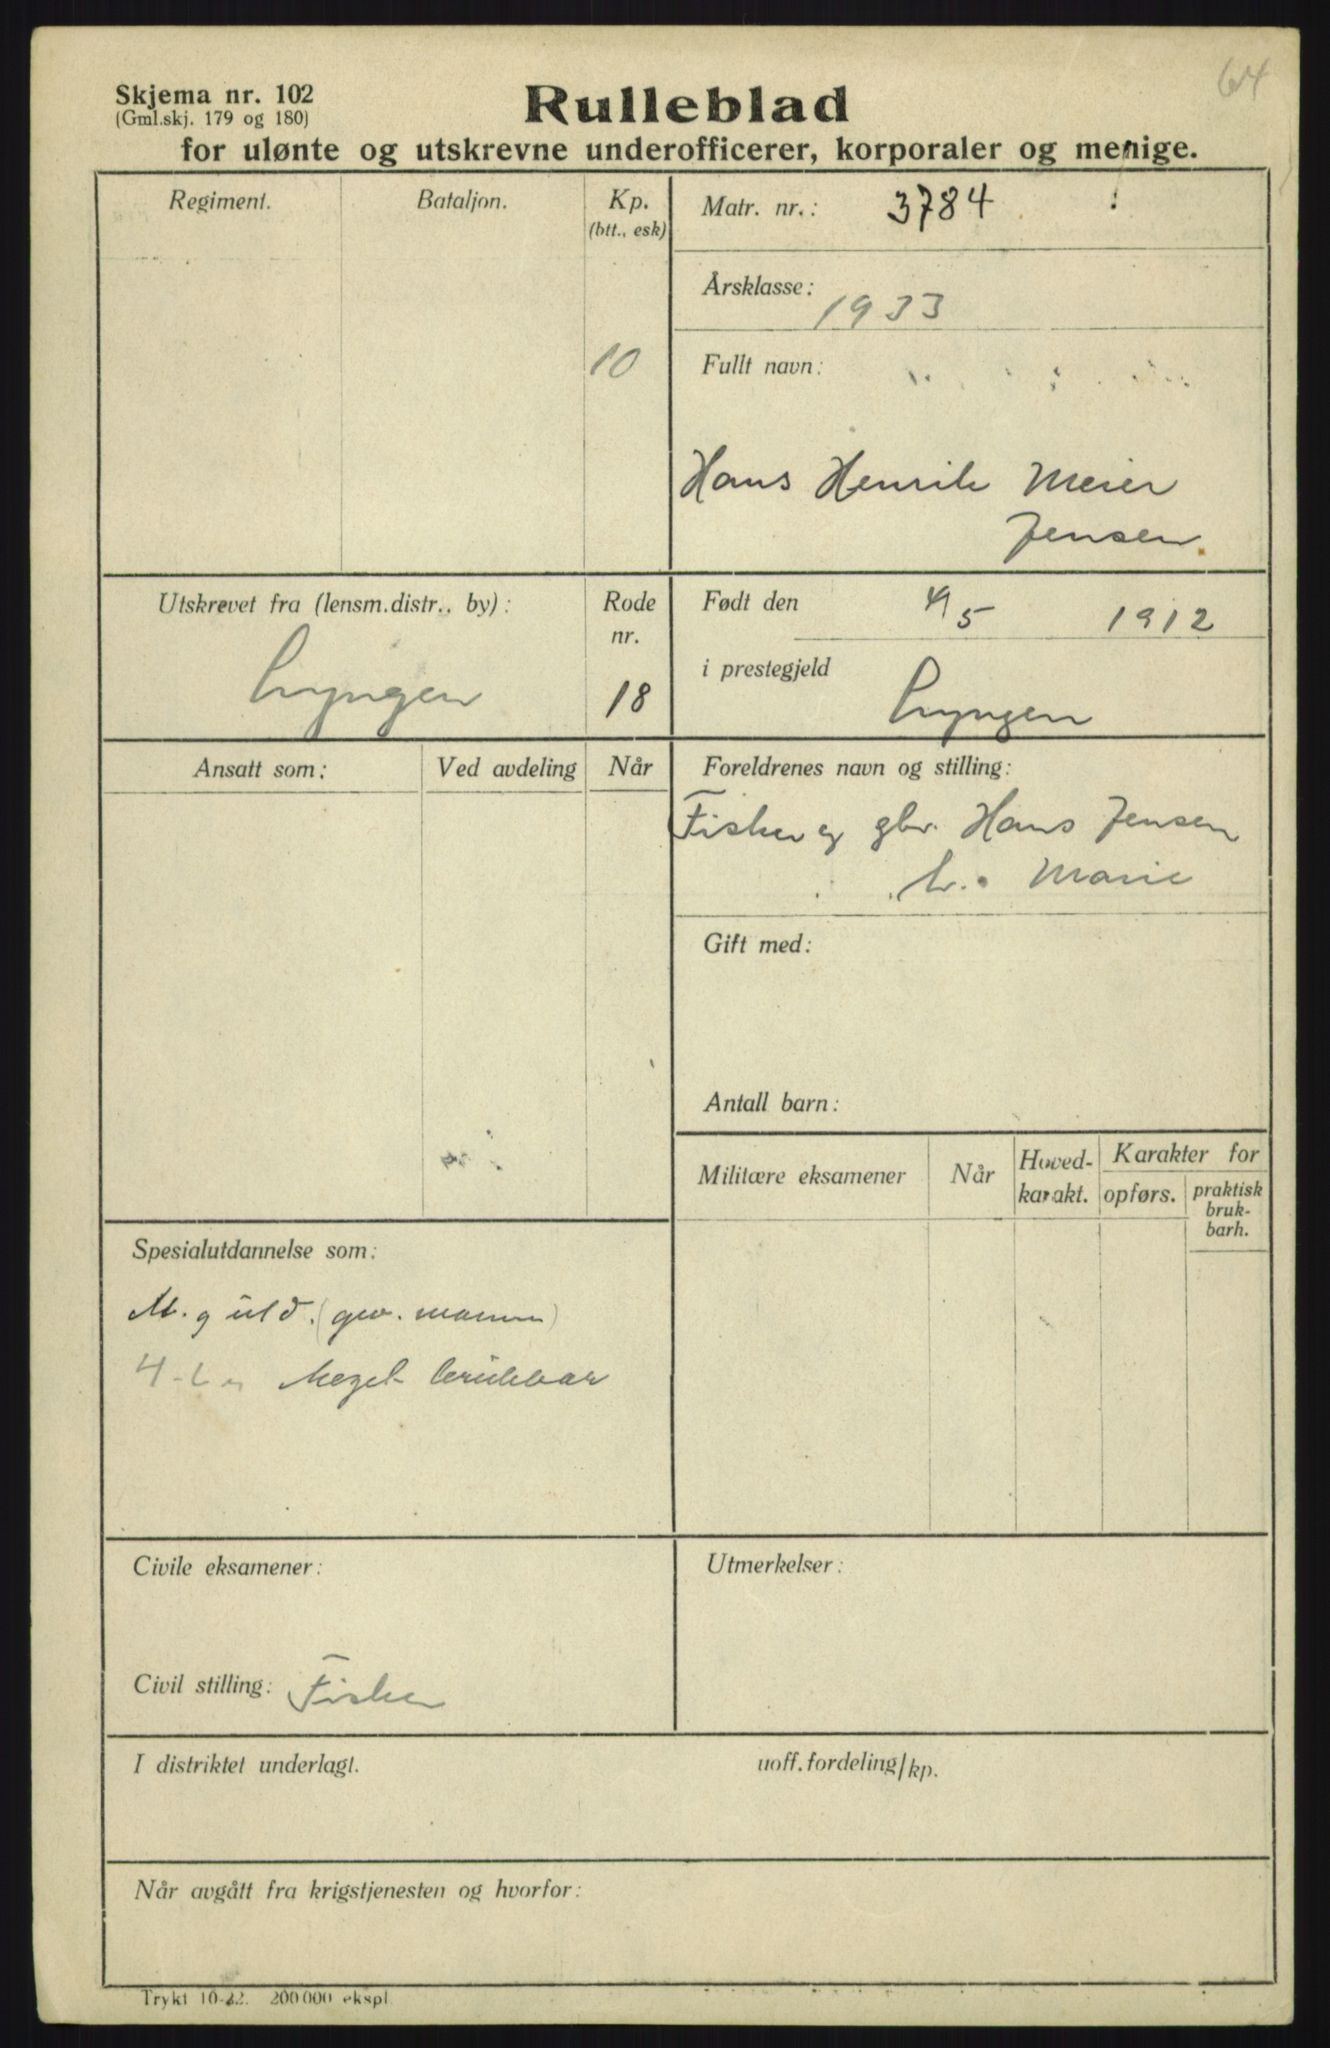 64
Skjema nr. 102
(Gml.skj. 179 og 180)
Rulleblad
for ulønte og utskrevne underofficerer, korporaler og menige.
Regiment.
Bataljon.
Kp.
(btt., esk)
10
Matr. nr.: 3784
Årsklasse: 1933
Fullt navn:
Hans Henrik Meier
Jensen
Utskrevet fra (lensm.distr., by):
Lyngen
Rode
nr.
18
Født den 4/5 1912
i prestegjeld
Lyngen
Ansatt som:
Ved avdeling
Når
Foreldrenes navn og stilling:
Fisker og gbr. Hans Jensen
h. Marie
Gift med:
Antall barn:
Militære eksamener
Når
Hoved-
karakt.
Karakter for
opførs.
praktisk
bruk-
barh.
Spesialutdannelse som:
M. g utd. (gev. mann)
Meget brukbar
Civile eksamener:
Civil stilling: Fisker
Utmerkelser:
I distriktet underlagt.
uoff. fordeling/kp.
Når avgått fra krigstjenesten og hvorfor:
Trykt 10-22. 200 000 ekspl.